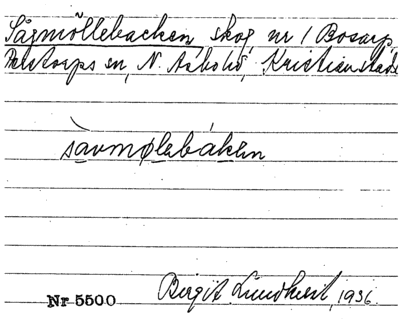 Sågmöllebacken, skog, nr 1 Bosarp,
sn, N. Åsbohd, Kristianstads
sàvmølebáken
Nr 5500 Birgit Lundkvist, 1936.